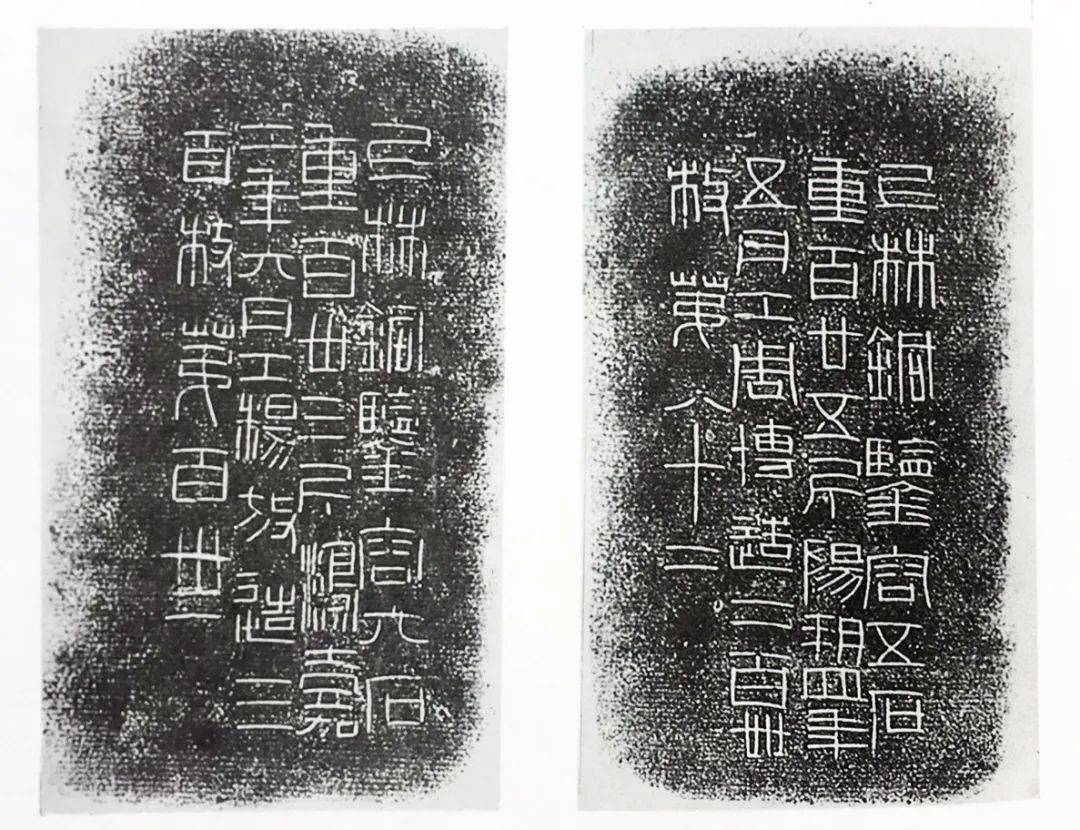 上林銅鑒容五石
重百廿五斤陽朔四年
五月工周博造二百卌
枚第八十二
上林銅鑒容六石
重百卅三斤鴻嘉
二年六月工楊放造三
百枚第百卅一